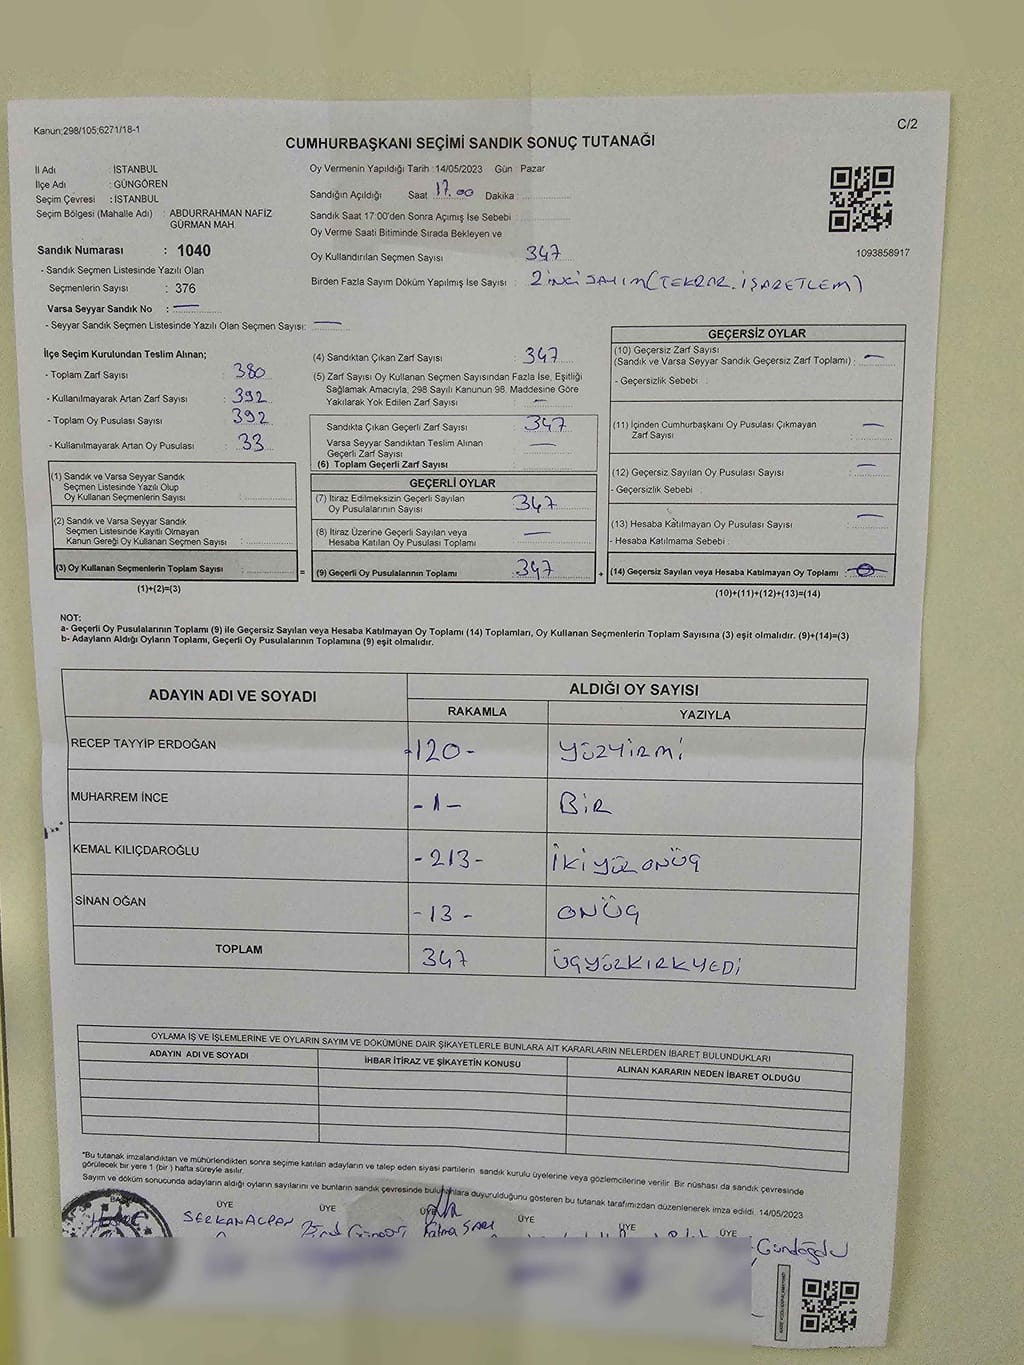 Kanun;298/105;6271/18-1
C/2
CUMHURBAŞKANI SEÇİMİ SANDIK SONUÇ TUTANAĞI
İl Adı : İSTANBUL
İlçe Adı : GÜNGÖREN
Seçim Çevresi : İSTANBUL
Seçim Bölgesi (Mahalle Adı) : ABDURRAHMAN NAFİZ
GÜRMAN MAH
Sandık Numarası : 1040
- Sandık Seçmen Listesinde Yazılı Olan
Seçmenlerin Sayısı : 376
Varsa Seyyar Sandık No : —
- Seyyar Sandık Seçmen Listesinde Yazılı Olan Seçmen Sayısı: —
Oy Vermenin Yapıldığı Tarih :14/05/2023 Gün Pazar
Sandığın Açıldığı Saat 17.00 Dakika :
Sandık Saat 17:00'den Sonra Açımış İse Sebebi :
Oy Verme Saati Bitiminde Sırada Bekleyen ve
Oy Kullandırılan Seçmen Sayısı : 347
Birden Fazla Sayım Döküm Yapılmış İse Sayısı : 2 İNCİ SAYIM (TEKRAR. İŞARETLEM)
1093858917
İlçe Seçim Kurulundan Teslim Alınan;
- Toplam Zarf Sayısı : 380
- Kullanılmayarak Artan Zarf Sayısı : 392
- Toplam Oy Pusulası Sayısı : 392
- Kullanılmayarak Artan Oy Pusulası : 33
(1) Sandık ve Varsa Seyyar Sandık
Seçmen Listesinde Yazılı Olup
Oy Kullanan Seçmenlerin Sayısı :
(2) Sandık ve Varsa Seyyar Sandık
Seçmen Listesinde Kayıtlı Olmayan
Kanun Gereği Oy Kullanan Seçmen Sayısı :
(3) Oy Kullanan Seçmenlerin Toplam Sayısı : =
(1)+(2)=(3)
(4) Sandıktan Çıkan Zarf Sayısı : 347
(5) Zarf Sayısı Oy Kullanan Seçmen Sayısından Fazla İse, Eşitliği
Sağlamak Amacıyla, 298 Sayılı Kanunun 98. Maddesine Göre
Yakılarak Yok Edilen Zarf Sayısı : —
Sandıkta Çıkan Geçerli Zarf Sayısı : 347
Varsa Seyyar Sandıktan Teslim Alınan
Geçerli Zarf Sayısı : —
(6) Toplam Geçerli Zarf Sayısı :
GEÇERLİ OYLAR
(7) İtiraz Edilmeksizin Geçerli Sayılan
Oy Pusulalarının Sayısı : 347
(8) İtiraz Üzerine Geçerli Sayılan veya
Hesaba Katılan Oy Pusulası Toplamı : —
(9) Geçerli Oy Pusulalarının Toplamı : 347 +
GEÇERSİZ OYLAR
(10) Geçersiz Zarf Sayısı
(Sandık ve Varsa Seyyar Sandık Geçersiz Zarf Toplamı) : —
- Geçersizlik Sebebi :
(11) İçinden Cumhurbaşkanı Oy Pusulası Çıkmayan
Zarf Sayısı : —
(12) Geçersiz Sayılan Oy Pusulası Sayısı : —
- Geçersizlik Sebebi :
(13) Hesaba Katılmayan Oy Pusulası Sayısı : —
- Hesaba Katılmama Sebebi :
(14) Geçersiz Sayılan veya Hesaba Katılmayan Oy Toplamı : 0
(10)+(11)+(12)+(13)=(14)
NOT:
a- Geçerli Oy Pusulalarının Toplamı (9) ile Geçersiz Sayılan veya Hesaba Katılmayan Oy Toplamı (14) Toplamları, Oy Kullanan Seçmenlerin Toplam Sayısına (3) eşit olmalıdır. (9)+(14)=(3)
b- Adayların Aldığı Oyların Toplamı, Geçerli Oy Pusulalarının Toplamına (9) eşit olmalıdır.
ADAYIN ADI VE SOYADI
ALDIĞI OY SAYISI
RAKAMLA YAZIYLA
RECEP TAYYİP ERDOĞAN -120- YÜZYİRMİ
MUHARREM İNCE -1- BİR
KEMAL KILIÇDAROĞLU -213- İKİYÜZONÜÇ
SİNAN OĞAN -13- ONÜÇ
TOPLAM 347 ÜÇYÜZKIRKYEDİ
OYLAMA İŞ VE İŞLEMLERİNE VE OYLARIN SAYIM VE DÖKÜMÜNE DAİR ŞİKAYETLERLE BUNLARA AİT KARARLARIN NELERDEN İBARET BULUNDUKLARI
ADAYIN ADI VE SOYADI İHBAR İTİRAZ VE ŞİKAYETİN KONUSU ALINAN KARARIN NEDEN İBARET OLDUĞU
*Bu tutanak imzalandıktan ve mühürlendikten sonra seçime katılan adayların ve talep eden siyasi partilerin sandık kurulu üyelerine veya gözlemcilerine verilir. Bir nüshası da sandık çevresinde
görülecek bir yere 1 (bir) hafta süreyle asılır.
Sayım ve döküm sonucunda adayların aldığı oyların sayılarını ve bunların sandık çevresinde bulunanlara duyurulduğunu gösteren bu tutanak tarafımızdan düzenlenerek imza edildi. 14/05/2023
ÜYE ÜYE ÜYE ÜYE ÜYE
SERKAN ALPAN Fatma SARI Gündoğdu